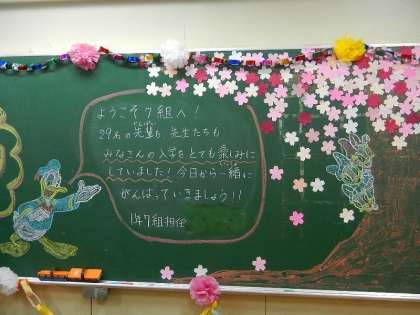 ようこそ7組へ！
29名の先輩も 先生たちも
みなさんの入学をとても楽しみに
していました！今日から一緒に
がんばっていきましょう！！
1年7組担任